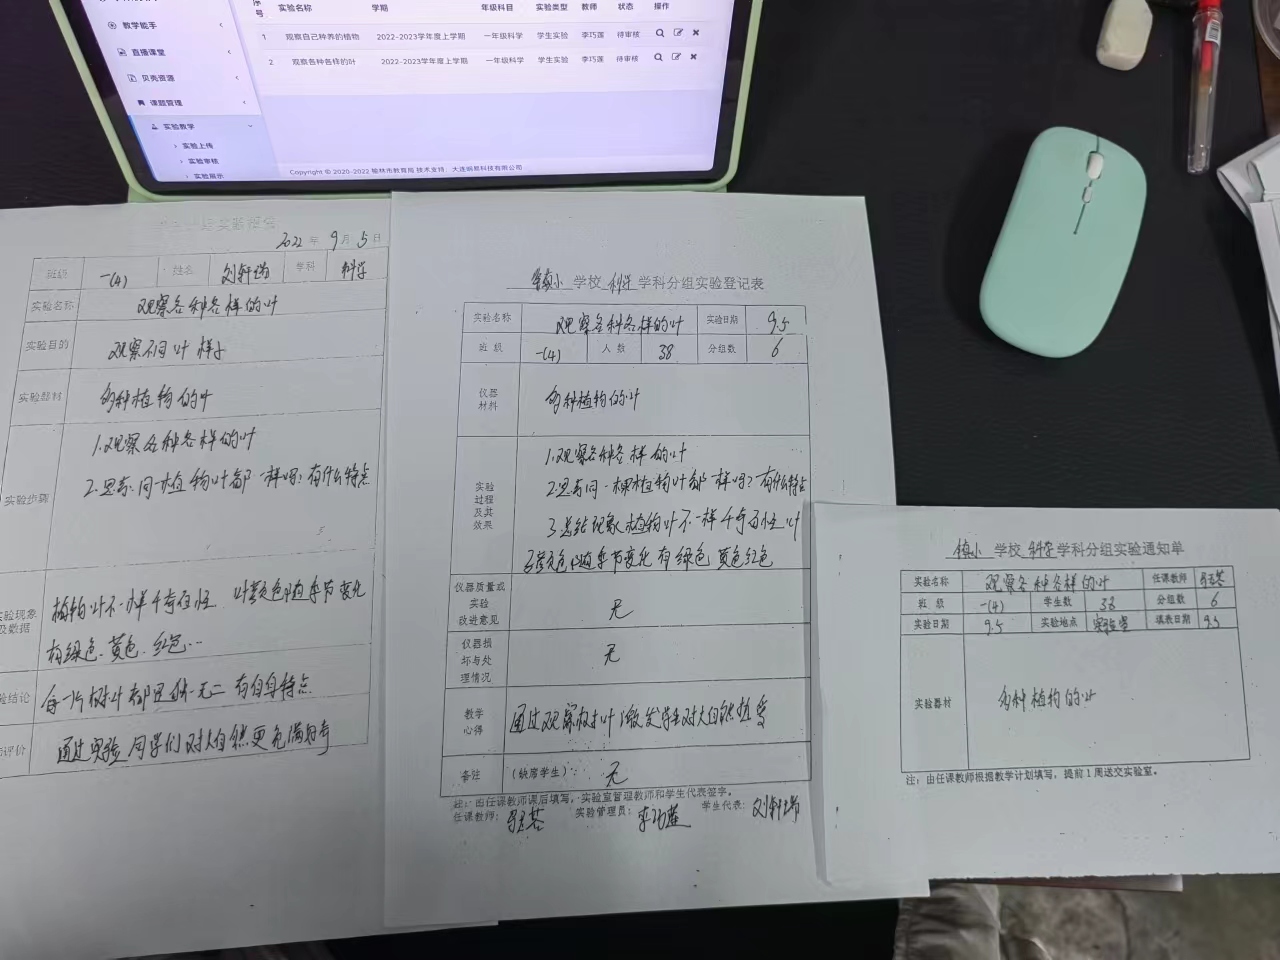 号 实验名称 学期 年级科目 实验类型 教师 状态 操作
1 观察自己种养的植物 2022-2023学年度上学期 一年级科学 学生实验 李巧莲 待审核
2 观察各种各样的叶 2022-2023学年度上学期 一年级科学 学生实验 李巧莲 待审核
教学能手
直播课堂
贝壳资源
课题管理
实验教学
实验上传
实验审核
实验展示
Copyright © 2020-2022 榆林市教育局 技术支持：大连帆易科技有限公司
2022 年 9 月 5 日
班级 一(4) 姓名 刘轩瑞 学科 科学
实验名称 观察各种各样的叶
实验目的 观察不同叶 样子
实验器材 多种植物的叶
实验步骤
1.观察各种各样的叶
2.思考:同一植物叶都一样吗?有什么特点
实验现象及数据
植物叶不一样千奇百怪 叶颜色随季节变化
有绿色、黄色、红色…
验结论 每一片树叶都是独一无二 有自身特点
评价 通过实验 同学们对大自然更充满好奇
镇小 学校 科学 学科分组实验登记表
实验名称 观察各种各样的叶 实验日期 9.5
班 级 一(4) 人 数 38 分组数 6
仪器材料 多种植物的叶
实验过程及其效果
1.观察各种各样的叶
2.思考同一棵植物叶都一样吗?有什么特点
3.总结现象 植物叶不一样千奇百怪 叶
子颜色随季节变化 有绿色 黄色红色
仪器质量或实验改进意见 无
仪器损坏与处理情况 无
教学心得 通过观察树叶激发学生对大自然热爱
备注 (缺席学生): 无
注: 由任课教师课后填写,实验室管理教师和学生代表签字。
任课教师: 实验管理员: 李巧莲 学生代表: 刘轩瑞
镇小 学校 科学 学科分组实验通知单
实验名称 观察各种各样的叶 任课教师
班 级 一(4) 学生数 38 分组数 6
实验日期 9.5 实验地点 实验室 填表日期 9.5
实验器材 多种植物的叶
注: 由任课教师根据教学计划填写，提前1周送交实验室。